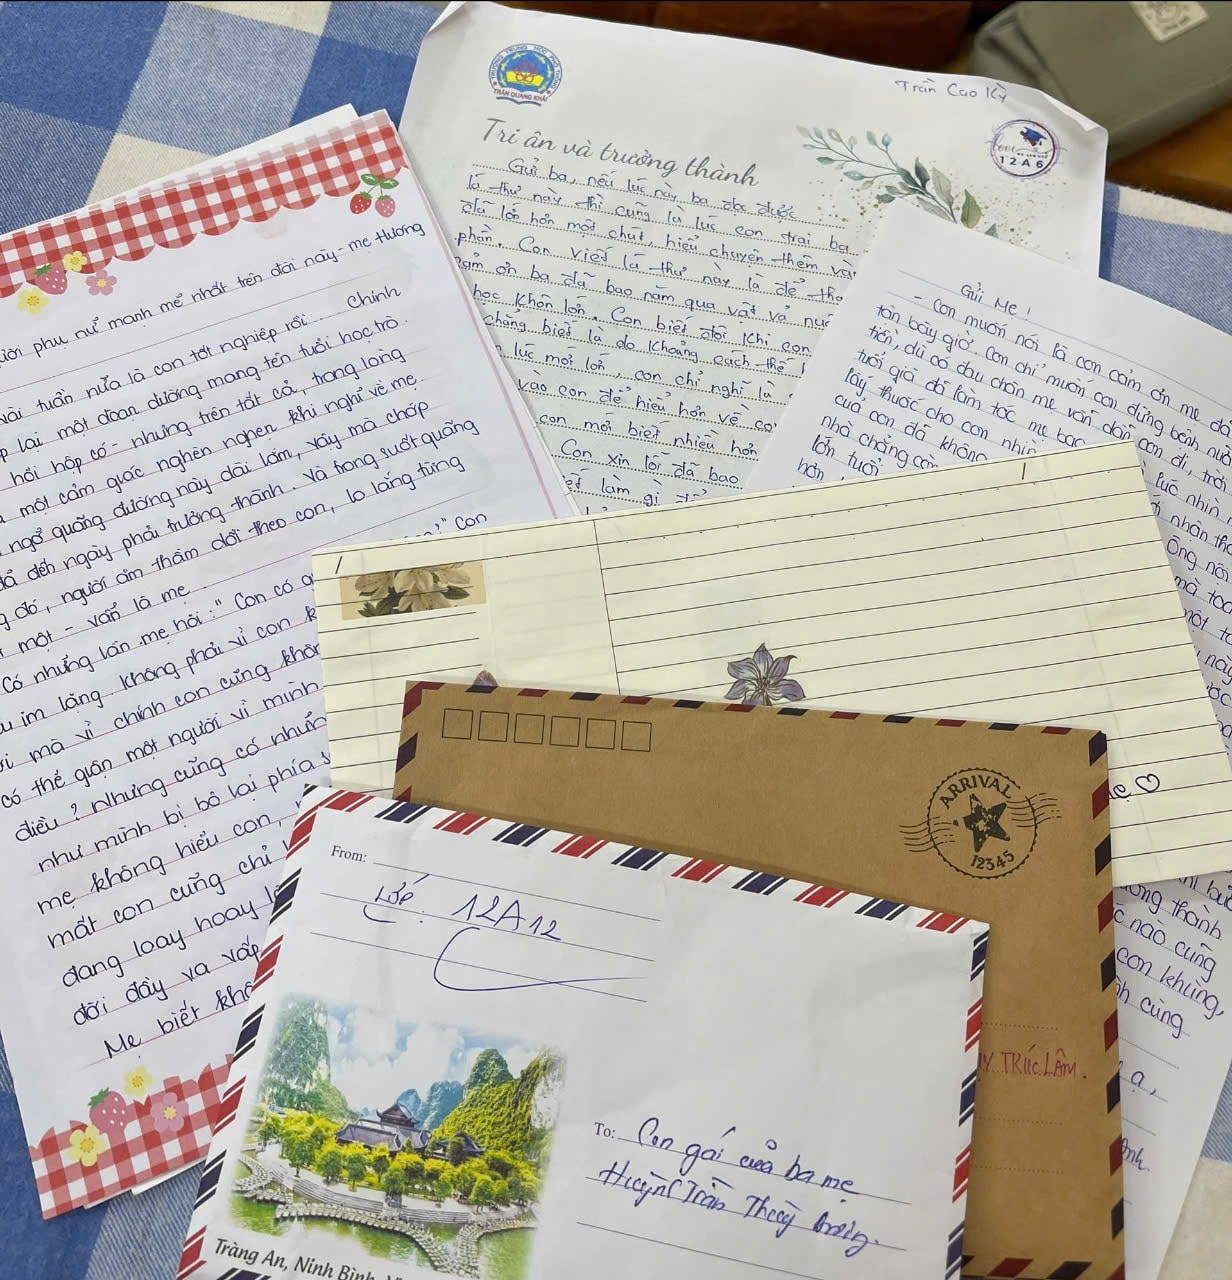 ười phụ nữ mạnh mẽ nhất trên đời này - mẹ thương
vài tuần nữa là con tốt nghiệp rồi... Chính
p lại một đoạn đường mang tên tuổi học trò.
hồi hộp có - nhưng trên tất cả, trong lòng
một cảm giác nghèn nghẹn khi nghĩ về mẹ
ngỡ quãng đường này dài lắm, vậy mà chớp
đã đến ngày phải trưởng thành. Và trong suốt quãng
g đó, người âm thầm dõi theo con, lo lắng từng
một - vẫn là mẹ
Có những lần mẹ hỏi: " Con có
im lặng, không phải vì con k
mà vì chính con cũng khôn
có thể giận một người vì mình
điều? Nhưng cũng có nhữn
như mình bị bỏ lại phía s
mẹ không hiểu con,
mất con cũng chỉ
đang loay hoay
đời đầy va vấp
Mẹ biết khô
" Con
TRƯỜNG TRUNG HỌC PHỔ THÔNG
TRẦN QUANG KHẢI
Trần Cao Kỳ
12A6
Tri ân và trưởng thành
Gửi ba, nếu lúc này ba đọc được
lá thư này thì cũng là lúc con trai ba
đã lớn hơn một chút, hiểu chuyện thêm vài
phần. Con viết lá thư này là để tha
cảm ơn ba đã bao năm qua vất vả nuô
học khôn lớn. Con biết đôi khi con
chẳng biết là do khoảng cách thế h
lúc mới lớn, con chỉ nghĩ là
vào con để hiểu hơn về co
con mới biết nhiều hơn
Con xin lỗi đã bao
iết làm gì để
Gửi Mẹ !
- Con muốn nói là con cảm ơn mẹ đã
tận bây giờ. Con chỉ muốn con đừng bệnh nữ
tiền, dù có đau chân mẹ vẫn dẫn con đi, trời
tuổi già đã làm tóc mẹ bạc
lấy thuốc cho con nhìn
của con đã không
nhà chẳng còn
lớn tuổi
hơn,
lúc nhìn
nhận th
Ông nói
mà to
một
này
ông thành
c nào cũng
con khùng,
nh cùng
ạ,
ẹ ♡
ARRIVAL
12345
TRÚC LÂM
From:
Lớp: 12A12
To: Con gái của ba mẹ
Huỳnh Trần Thùy
Tràng An, Ninh Bình